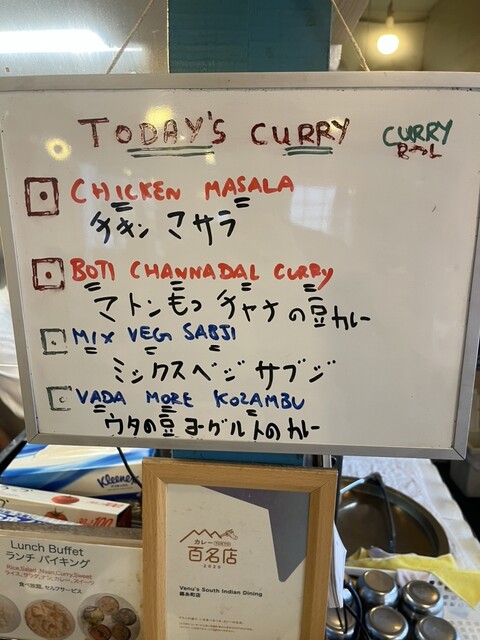 TODAY'S CURRY
CURRY
CHICKEN MASALA
チキン マサラ
BOTI CHANNADAL CURRY
マトンもつ チャナの豆カレー
MIX VEG SABJI
ミックスベジ サブジ
VADA MORE KOZAMBU
ウタの豆ヨーグルトのカレー
Kleenex
Lunch Buffet
ランチ バイキング
Rice,Salad,Naan,Curry,Sweet
ライス,サラダ,ナン,カレー,スイーツ
食べ放題, セルフサービス
カレー TOKYO
百名店
Venu's South Indian Dining
錦糸町店